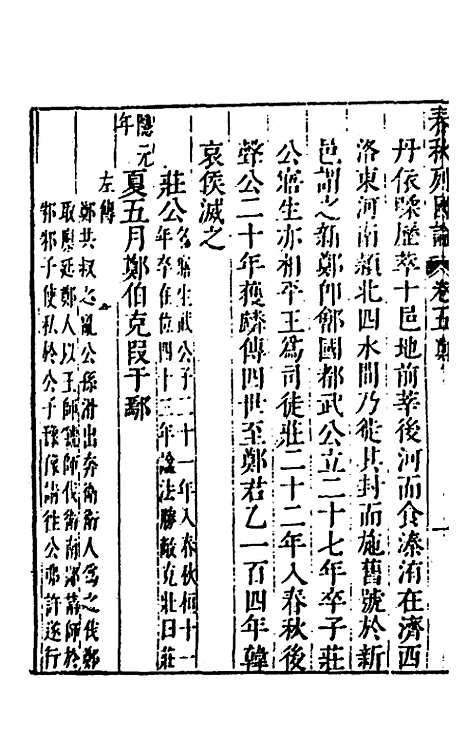 春秋列國論 卷五 鄭 一
丹依𱂬歷莘十邑地前莘後河而食溱洧在濟西
洛東河南潁北四水間乃徙其封而施舊號於新
邑謂之新鄭仰鄶國都武公立二十七年卒子莊
公寤生亦相平王為司徒莊二十二年入春秋後
聲公二十年獲麟傳四世至鄭君乙一百四年韓
哀侯滅之
莊公名寤生武公子二十一年入春秋桓十一
年卒在位四十三年諡法勝敵克壯曰莊
隱元年
夏五月鄭伯克段于鄢
左傳
鄭共叔之亂公孫滑出奔衛衛人為之伐鄭
取廩延鄭人以王師虢師伐衛南鄙請師於
邾邾子使私於公子豫豫請往公弗許遂行